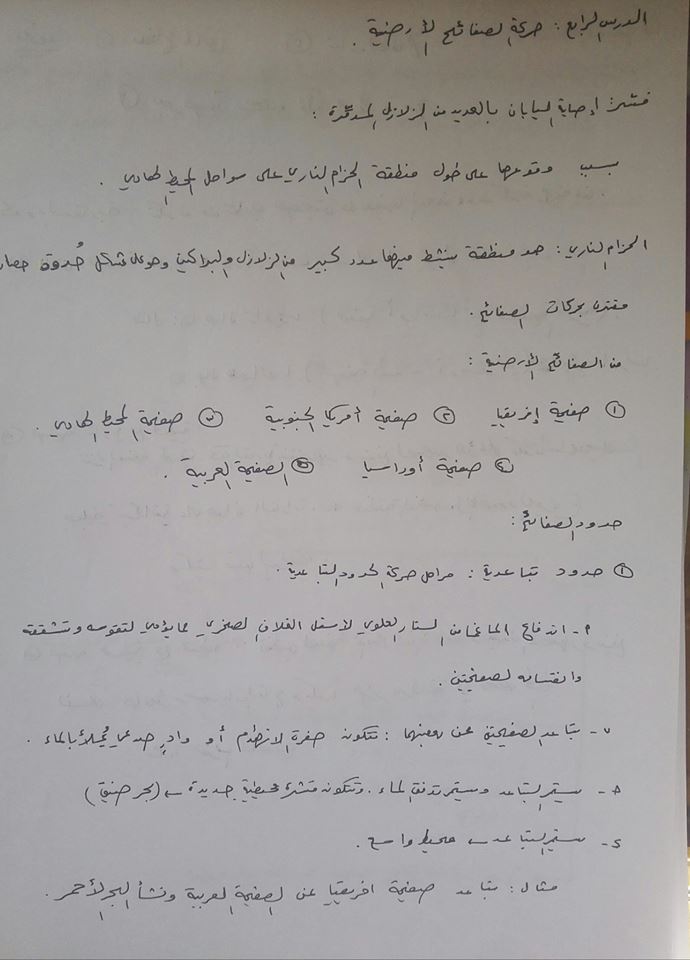 الدرس الرابع : حركة الصفائح الأرضية .
فسّر : إصابة اليابان بالعديد من الزلازل المدمّرة :
بسبب وقوعها على طول منطقة الحزام الناري على سواحل المحيط الهادي .
الحزام الناري : هو منطقة ينشط فيها عدد كبير من الزلازل والبراكين وهو على شكل حُدوة حصان
مقترن بحركات الصفائح .
من الصفائح الأرضية :
① صفيحة إفريقيا ② صفيحة أمريكا الجنوبية ③ صفيحة المحيط الهادي .
④ صفيحة أوراسيا ⑤ الصفيحة العربية .
حدود الصفائح :
① حدود تباعدية : مراحل حركة الحدود التباعدية .
أ- اندفاع الماغما من الستار العلوي لأسفل الغلاف الصخري مما يؤدي لتقوسه وتشققه
وانقسامه لصفيحتين .
ب- تباعد الصفيحتين عن بعضهما : تتكون حفرة الانهدام أو وادٍ صدعي يُملأ بالماء .
ج- يستمر التباعد ويستمر تدفق الماء . وتتكون قشرة محيطية جديدة ← (بحر ضيق)
د- يستمر التباعد ← محيط واسع .
مثال : تباعد صفيحة افريقيا عن الصفيحة العربية ونشأ البحر الأحمر .